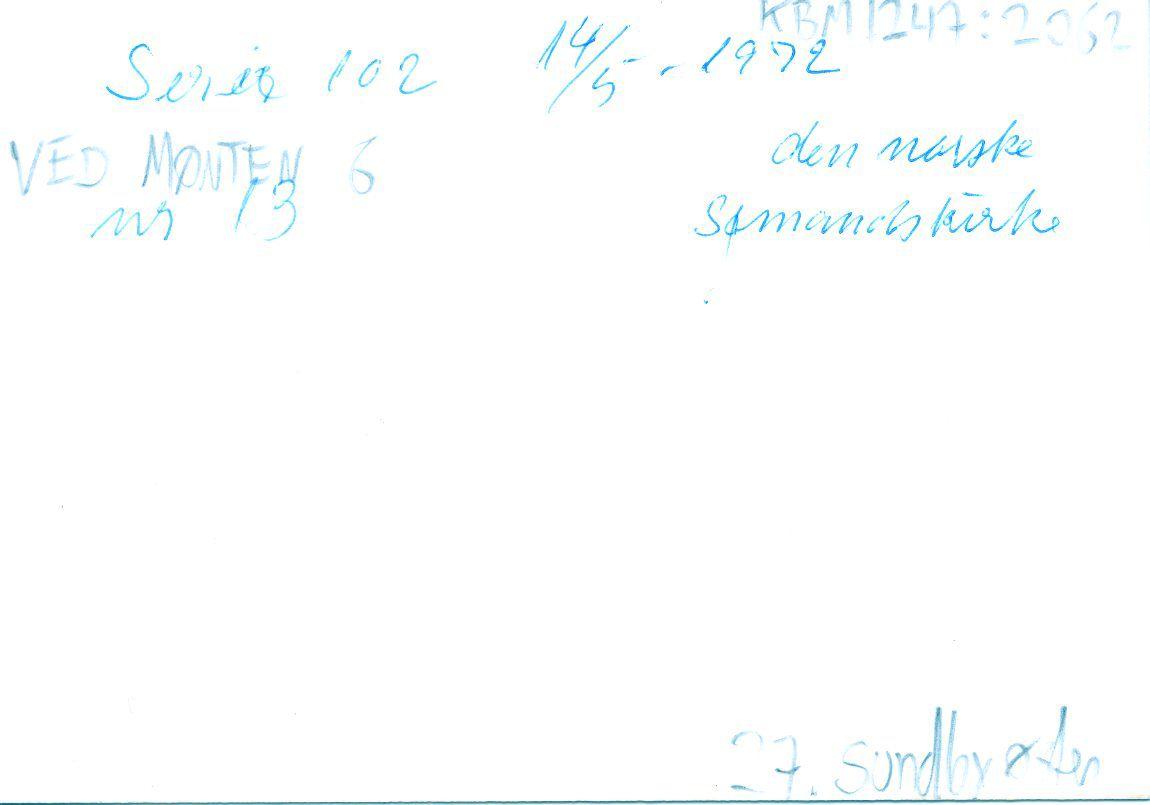 KBM 1247:2052
Serie 102 14/5 - 1972
VED MØNTEN 6
nr 13
den norske
Sømandskirke
27. Sundbyøster